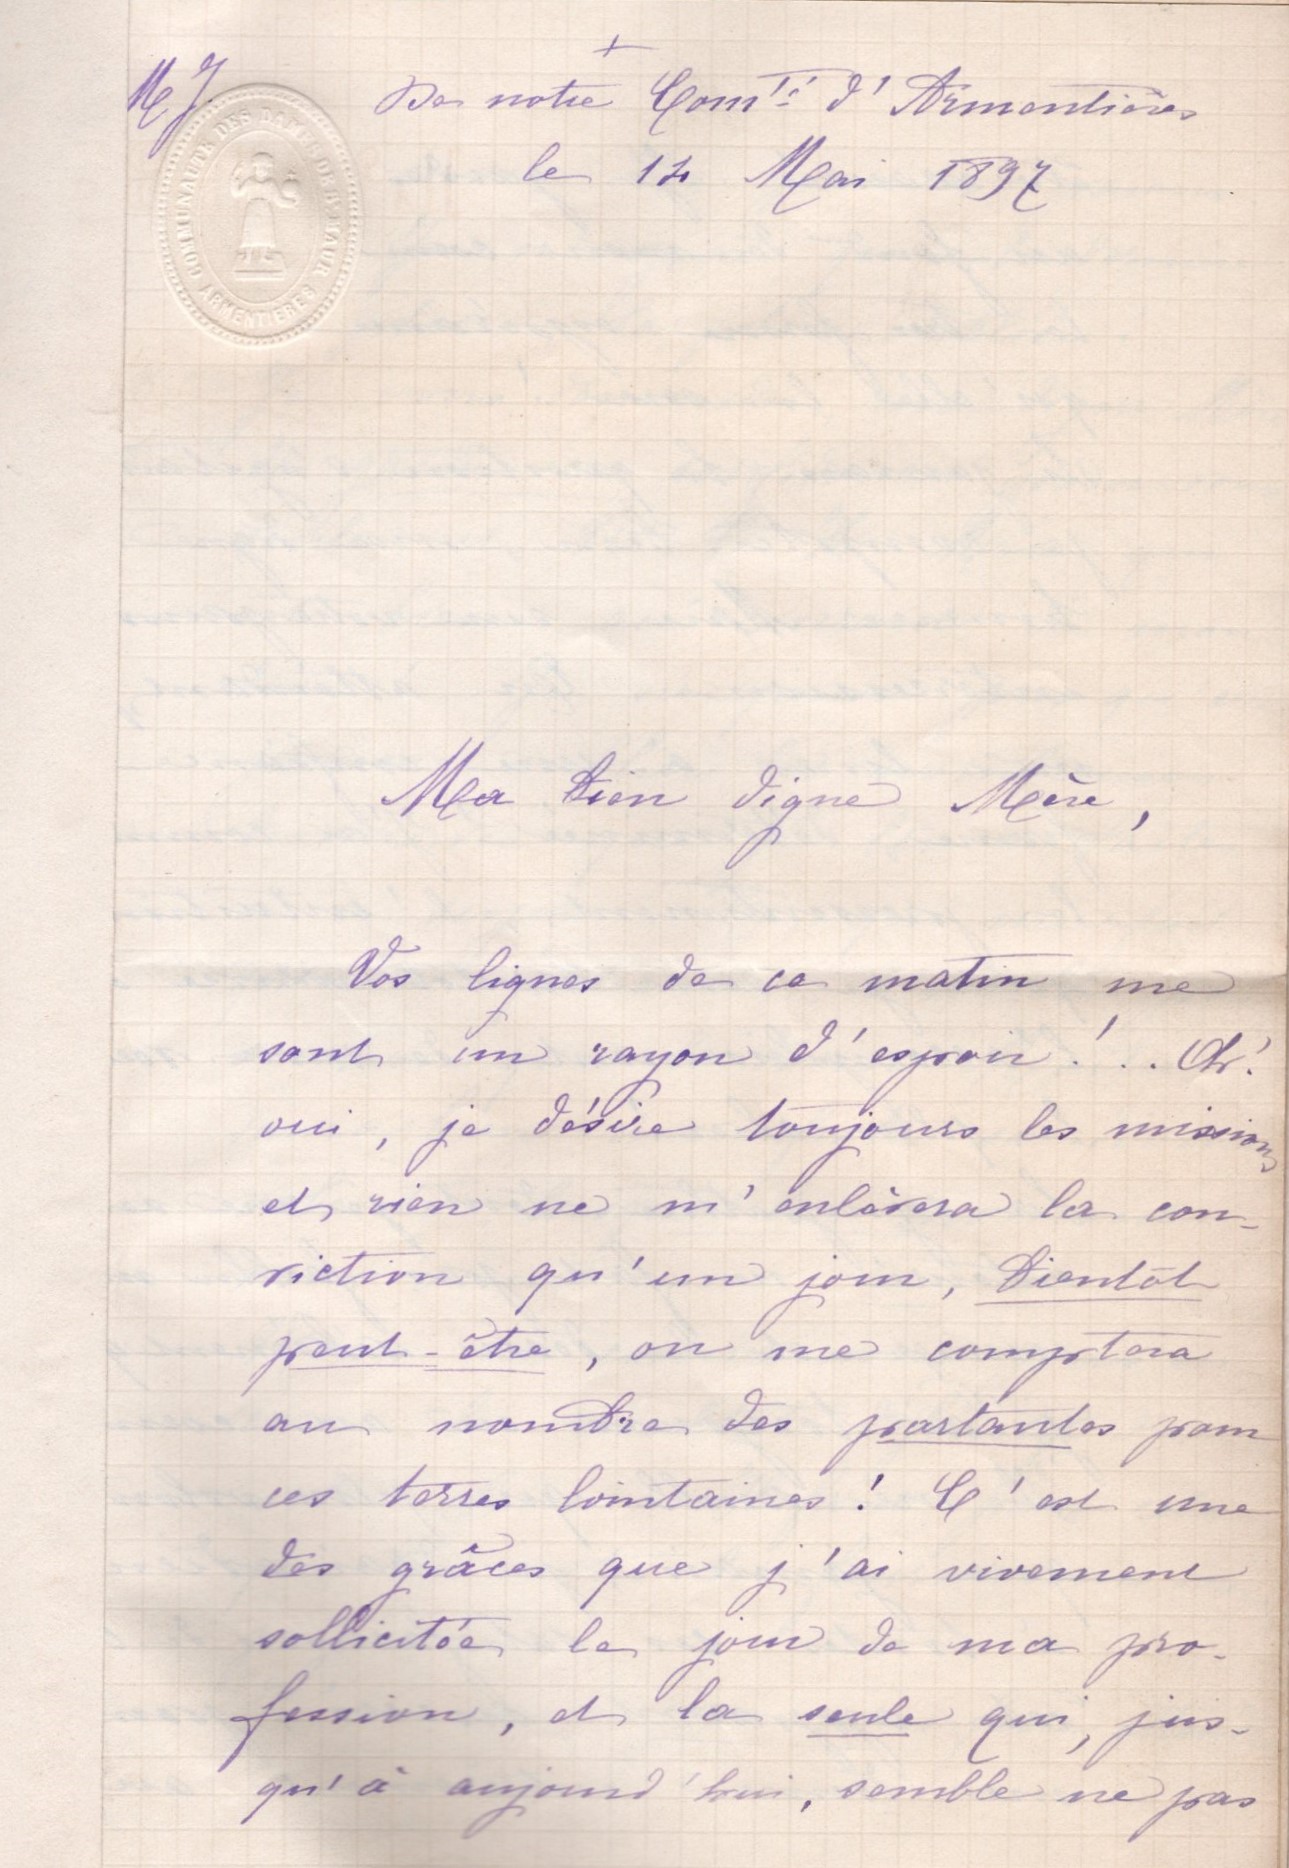 +
MJ
De notre Comté d'Armentières
le 14 Mai 1897
COMMUNAUTÉ DES DAMES DE ST MAUR
ARMENTIÈRES
Ma bien digne Mère,
Vos lignes de ce matin me
sont un rayon d'espoir !.. Oh!
oui, je désire toujours les missions
et rien ne m'enlèvera la con-
viction qu'un jour, bientôt
peut-être, on me comptera
au nombre des partantes pour
ces terres lointaines ! C'est une
des grâces que j'ai vivement
sollicitée le jour de ma pro-
fession, et la seule qui, jus-
qu'à aujourd'hui, semble ne pas